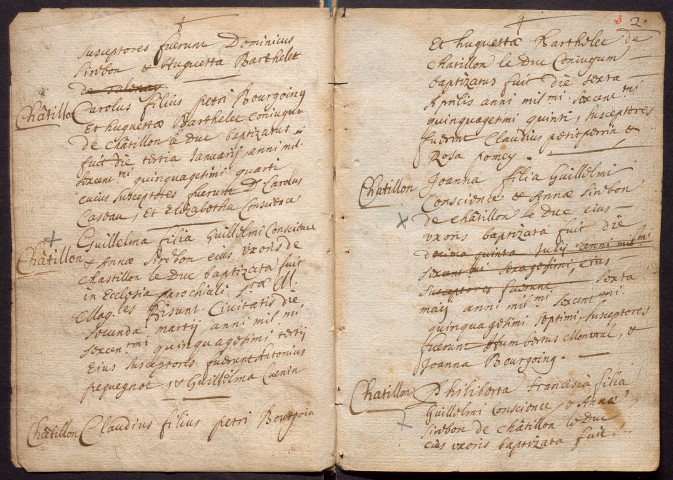 susceptores fuerunt Dominicus
Simbon et Huguetta Barthelet
de
Châtillon Carolus filius petri Bourgoing
Et huguettæ Barthelet Coniugum
de Châtillon le Duc baptizatus
fuit die tertia Januarij anni mil.
sexcent.mi quinquagesimi quarti
cuius susceptores fuerunt D. Carolus
Caseau, et Elizabetha Conscience
Châtillon Guillelma filia Guillelmi Conscience
& Annæ Simbon eius uxoris de
Chastillon le Duc baptizata fuit
in Ecclesia parochiali
Mag.les Bisunt. Civitatis die
secunda martij anni mil mi
sexcen.mi quinquagesimi tertij
Eius susceptores fuerunt Antonius
pequegnot & Guillelma Cuenin
Châtillon Claudius filius petri Bourgoin
2.
Et huguettæ Barthelet de
Chatillon le Duc Coniugum
baptizatus fuit die sexta
Aprilis anni mil mi sexcent mi
quinquagesimi quinti, susceptores
fuerunt Claudius petitperrin et
Rosa pomey.
Châtillon Joanna filia Guillelmi
Conscience & Annæ Simbon
de Châtillon le Duc eius
uxoris baptizata fuit die
decima quinta Julij anni mil mi
sexcent mi sexagesimi, eius
susceptores fuerunt sexta
maij anni mil mi sexcent mi.
quinquagesimi septimi, susceptores
fuerunt Humbertus Monnral, &
Joanna Bourgoing.
Chatillon Philiberta Francisca filia
Guillelmi Conscience & Annæ
Simbon de Châtillon le Duc
eius uxoris baptizata fuit